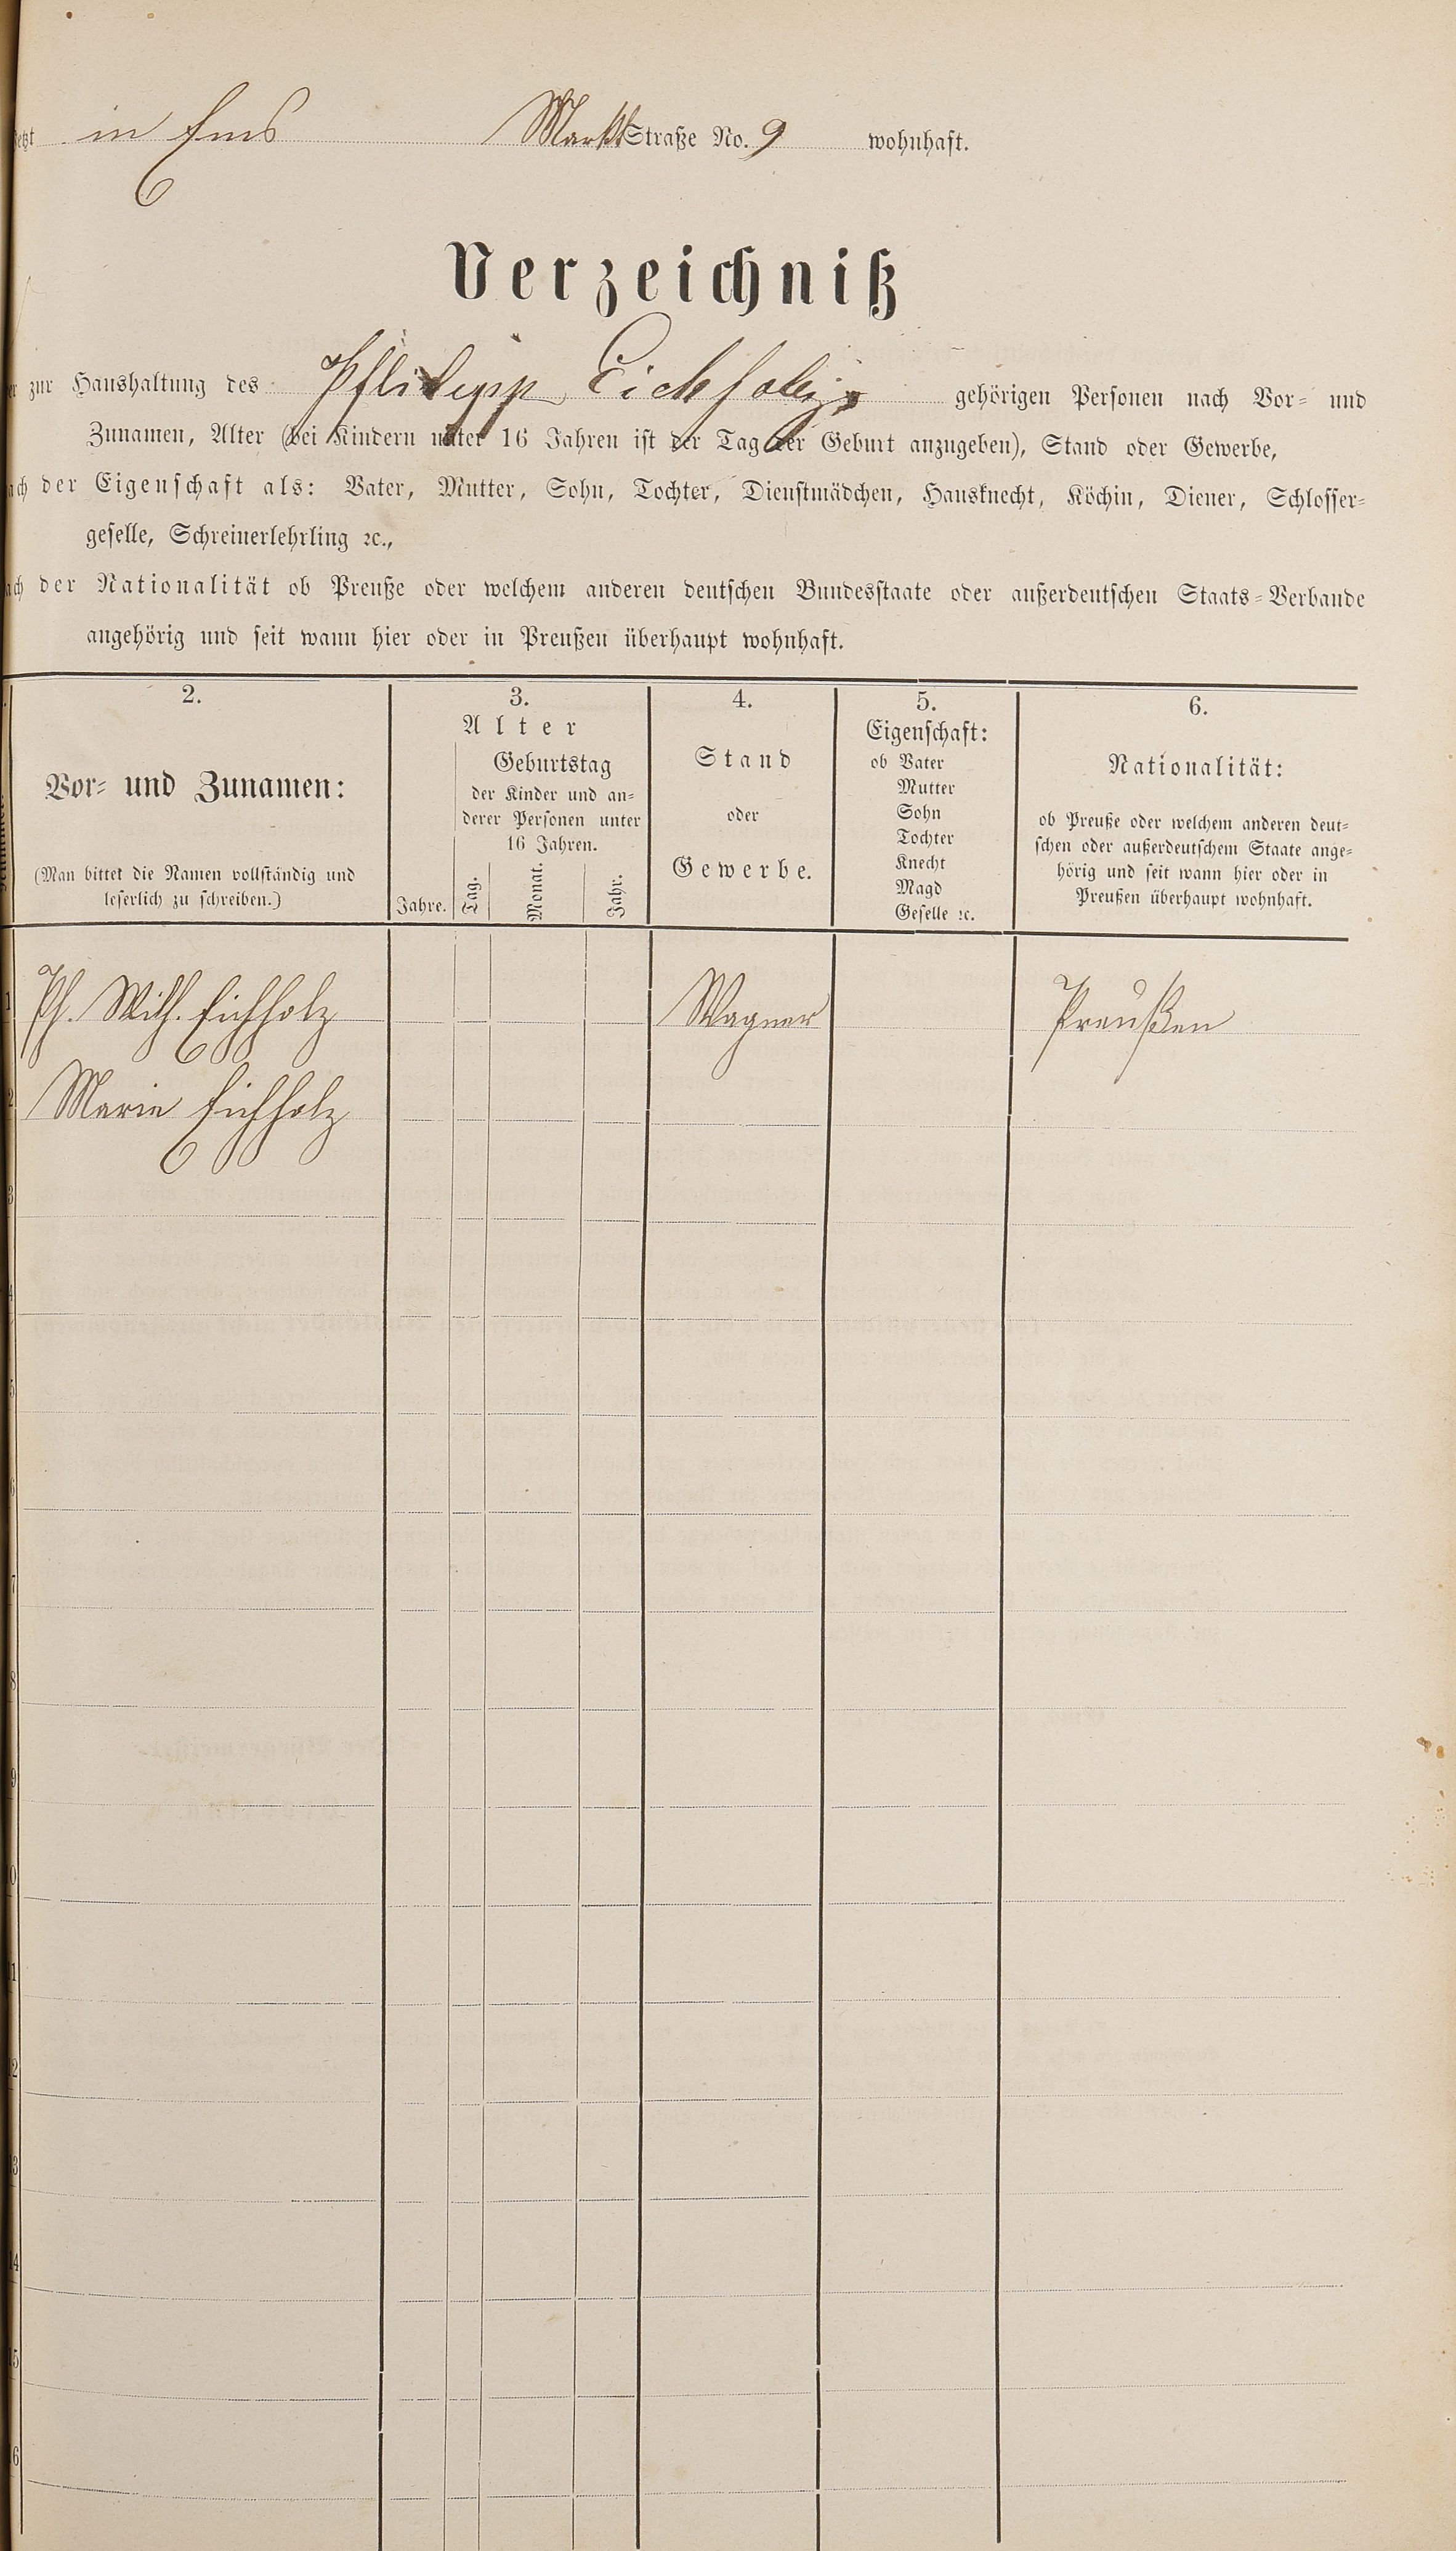 jetzt in Ems Markt Straße No. 9 wohnhaft.
Verzeichniß
der zur Haushaltung des Philipp Eichholz gehörigen Personen nach Vor- und
Zunamen, Alter (bei Kindern unter 16 Jahren ist der Tag der Geburt anzugeben), Stand oder Gewerbe,
nach der Eigenschaft als: Vater, Mutter, Sohn, Tochter, Dienstmädchen, Hausknecht, Köchin, Diener, Schlosser-
geselle, Schreinerlehrling ꝛc.,
nach der Nationalität ob Preuße oder welchem anderen deutschen Bundesstaate oder außerdeutschen Staats-Verbande
angehörig und seit wann hier oder in Preußen überhaupt wohnhaft.
2.
Vor- und Zunamen:
(Man bittet die Namen vollständig und
leserlich zu schreiben.)
3.
Alter
Geburtstag
der Kinder und an-
derer Personen unter
16 Jahren.
Jahre. Tag. Monat. Jahr.
4.
Stand
oder
Gewerbe.
5.
Eigenschaft:
ob Vater
Mutter
Sohn
Tochter
Knecht
Magd
Geselle ꝛc.
6.
Nationalität:
ob Preuße oder welchem anderen deut-
schen oder außerdeutschem Staate ange-
hörig und seit wann hier oder in
Preußen überhaupt wohnhaft.
1 Ph. Wilh. Eichholz Wagner Preußen
2 Marie Eichholz
3
4
5
6
7
8
9
10
11
12
13
14
15
16